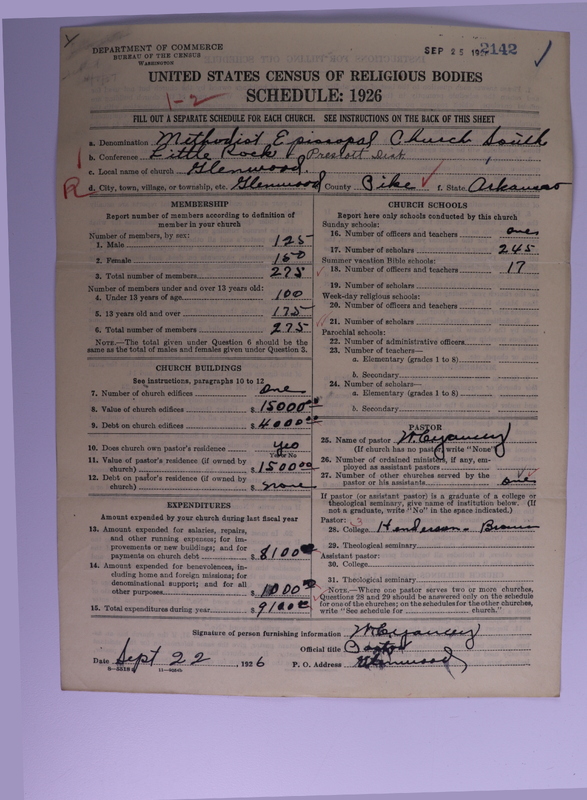 DEPARTMENT OF COMMERCE
BUREAU OF THE CENSUS
WASHINGTON
SEP 25 1926 2142
UNITED STATES CENSUS OF RELIGIOUS BODIES
1-2
SCHEDULE: 1926
FILL OUT A SEPARATE SCHEDULE FOR EACH CHURCH. SEE INSTRUCTIONS ON THE BACK OF THIS SHEET
a. Denomination Methodist Episcopal Church South
b. Conference Little Rock Prescott Dist.
c. Local name of church Glenwood
R d. City, town, village, or township, etc. Glenwood County Pike f. State Arkansas
MEMBERSHIP
Report number of members according to definition of
member in your church
Number of members, by sex:
1. Male 125
2. Female 150
3. Total number of members 275
Number of members under and over 13 years old:
4. Under 13 years of age 100
5. 13 years old and over 175
6. Total number of members 275
NOTE.—The total given under Question 6 should be the
same as the total of males and females given under Question 3.
CHURCH BUILDINGS
See instructions, paragraphs 10 to 12
7. Number of church edifices One
8. Value of church edifices $ 15000.00
9. Debt on church edifices $ 4000.00
10. Does church own pastor's residence yes
Yes or No
11. Value of pastor's residence (if owned by
church) $ 1500.00
12. Debt on pastor's residence (if owned by
church) $ none
EXPENDITURES
Amount expended by your church during last fiscal year
13. Amount expended for salaries, repairs,
and other running expenses; for im-
provements or new buildings; and for
payments on church debt $ 8100
14. Amount expended for benevolences, in-
cluding home and foreign missions; for
denominational support; and for all
other purposes $ 1000
15. Total expenditures during year $ 9100.00
CHURCH SCHOOLS
Report here only schools conducted by this church
Sunday schools:
16. Number of officers and teachers one
17. Number of scholars 245
Summer vacation Bible schools:
18. Number of officers and teachers 17
19. Number of scholars
Week-day religious schools:
20. Number of officers and teachers
21. Number of scholars
Parochial schools:
22. Number of administrative officers
23. Number of teachers—
a. Elementary (grades 1 to 8)
b. Secondary
24. Number of scholars—
a. Elementary (grades 1 to 8)
b. Secondary
PASTOR
25. Name of pastor W C Yancey
(If church has no pastor, write "None")
26. Number of ordained ministers, if any, em-
ployed as assistant pastors
27. Number of other churches served by the
pastor or his assistants one
If pastor (or assistant pastor) is a graduate of a college or
theological seminary, give name of institution below. (If
not a graduate, write "No" in the space indicated.)
Pastor:
28. College Henderson-Brown
29. Theological seminary
Assistant pastor:
30. College
31. Theological seminary
NOTE.—Where one pastor serves two or more churches,
Questions 28 and 29 should be answered only on the schedule
for one of the churches; on the schedules for the other churches,
write "See schedule for church."
Signature of person furnishing information W C Yancey
Official title Pastor
Date Sept 22, 1926 P. O. Address Glenwood